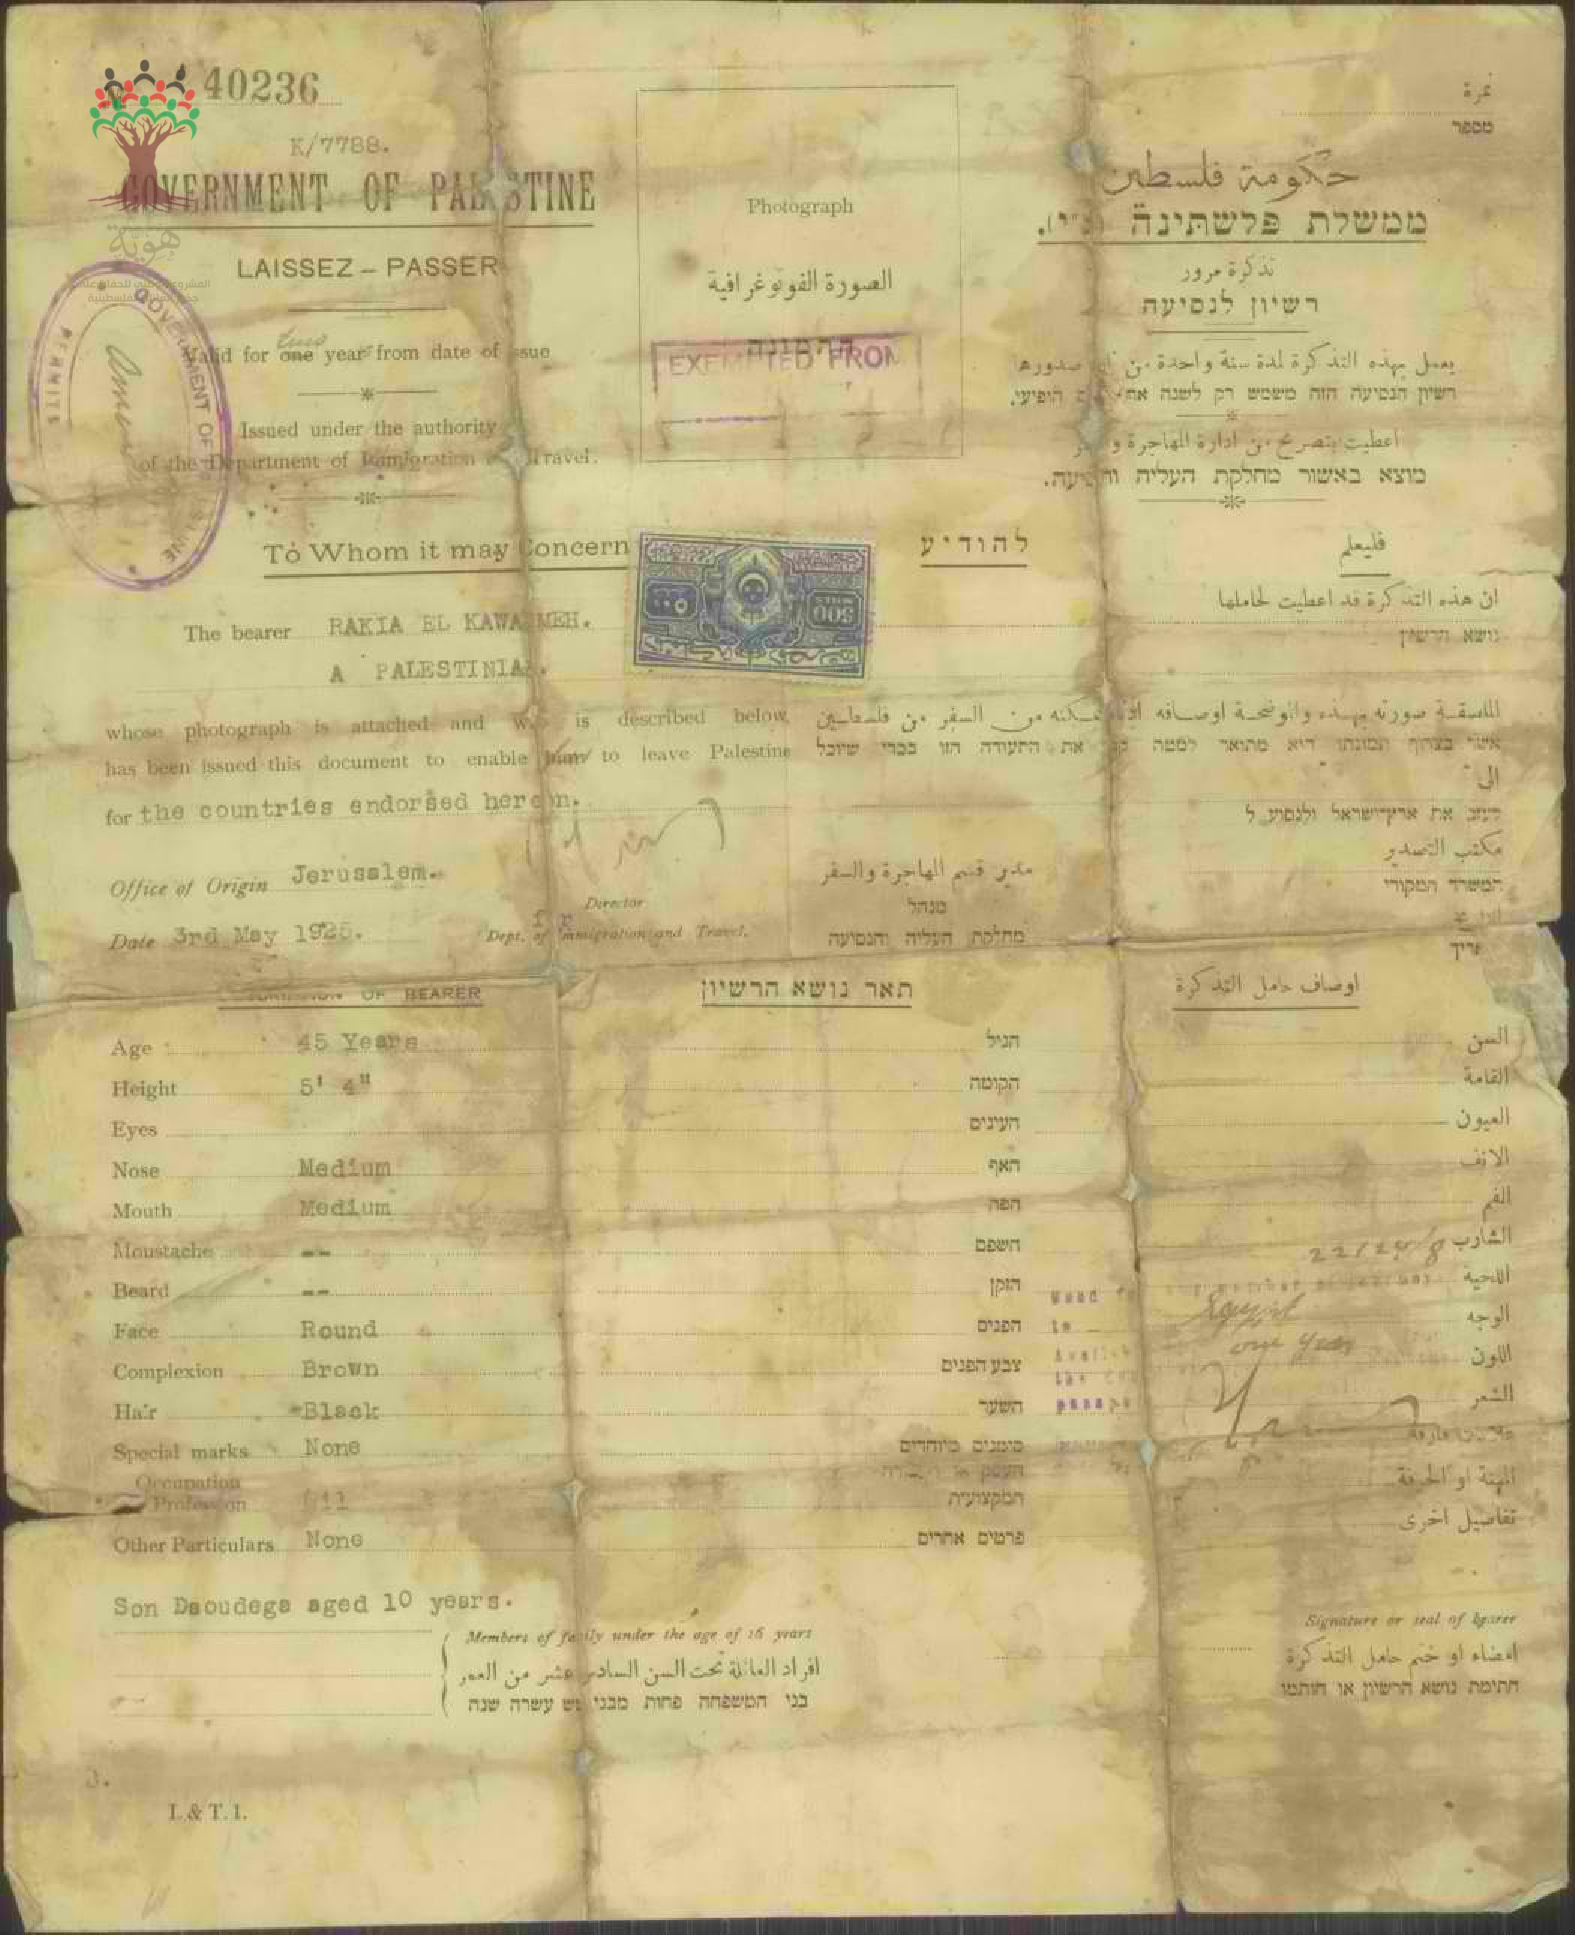 40236
K/7788.
GOVERNMENT OF PALESTINE
LAISSEZ - PASSER
Valid for one two years from date of issue
Issued under the authority
of the Department of Immigration Travel.
To Whom it may Concern
The bearer RAKIA EL KAWASMEH.
A PALESTINIAN.
whose photograph is attached and who is described below
has been issued this document to enable him to leave Palestine
for the countries endorsed hereon.
Office of Origin Jerusalem.
Date 3rd May 1925.
Director
Dept. of Immigration and Travel.
Photograph
الصورة الفوتوغرافية
התמונה
EXEMPTED FROM
GOVERNMENT OF PALESTINE
PERMITS
هوية
500
MILS
٥٠٠
نمرة
מספר
حكومة فلسطين
ממשלת פלשתינה (א"י).
تذكرة مرور
רשיון לנסיעה
يعمل بهذه التذكرة لمدة سنة واحدة من صدورها
רשיון הנסיעה הזה משמש רק לשנה הופיעו.
اعطيت بتصريح من ادارة المهاجرة
מוצא באשור מחלקת העליה והנסיעה.
להודיע
فليعلم
ان هذه التذكرة قد اعطيت لحاملها
נושא הרשיון
الملصقة صورته بهذه والموضحة اوصافه السفر من فلسطين
אשר בצרוף תמונתו הוא מתואר למטה את התעודה הזו בכדי שיוכל
الى
לעזוב את ארץ־ישראל ולנסוע ל
مكتب التصدير
המשרד המקורי
تاريخ
תאריך
مدير قسم المهاجرة والسفر
מנהל
מחלקת העליה והנסיעה
DESCRIPTION OF BEARER
תאר נושא הרשיון
اوصاف حامل التذكرة
Age 45 Years הגיל السن
Height 5' 4" הקומה القامة
Eyes העינים العيون
Nose Medium האף الانف
Mouth Medium הפה الفم
Moustache -- השפם الشارب
Beard -- הזקן اللحية
Face Round הפנים الوجه
Complexion Brown צבע הפנים اللون
Hair Black השער الشعر
Special marks None סימנים מיוחדים
Occupation
Profession המקצועית المهنة او الحرفة
Other Particulars None פרטים אחרים تفاصيل اخرى
Egypt
one year
Son Daoudega aged 10 years.
Members of family under the age of 16 years
افراد العائلة تحت السن السادس عشر من العمر
בני המשפחה פחות מבני שש עשרה שנה
Signature or seal of bearer
امضاء او ختم حامل التذكرة
חתימת נושא הרשיון או חותמו
I. & T. 1.